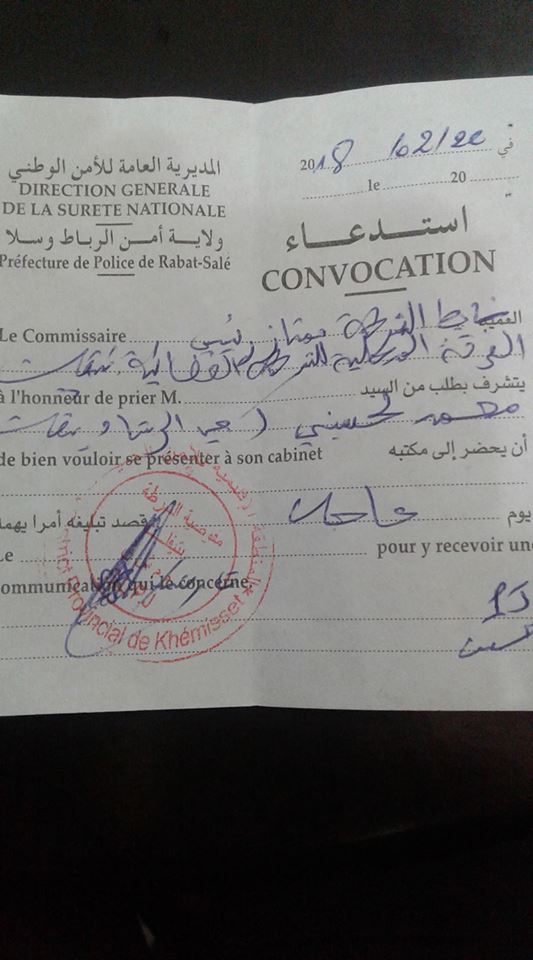 المديرية العامة للأمن الوطني
DIRECTION GENERALE
DE LA SURETE NATIONALE
ولاية أمن الرباط وسلا
Préfecture de Police de Rabat-Salé
في 2018 /02/22
le 20
استدعاء
CONVOCATION
العميد ضابط الشرطة ممتاز رئيس
Le Commissaire
الفرقة المحلية للشرطة القضائية تيفلت
يتشرف بطلب من السيد
à l'honneur de prier M.
محمد لحسيني
أن يحضر إلى مكتبه
de bien vouloir se présenter à son cabinet
يوم عاجلا قصد تبليغه أمرا يهمه
Le pour y recevoir une
communication qui le concerne.
مفوضية الشرطة
District Provincial de Khémisset